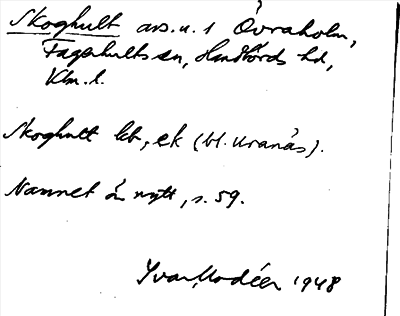 Skoghult avs. u. 1 Övraholm,
Fagerhults sn, Handbörds hd,
Klm. l.
Skoghult lht, ek (bl. Uranäs).
Namnet är nytt, s. 59.
Yvar Modéer 1948